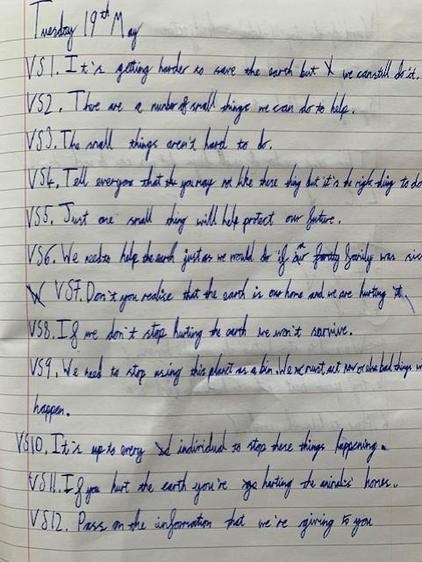 Tuesday 19th May
VS1. It's getting harder so save the earth but we can still do it.
VS2. There are a number of small things we can do to help.
VS3. The small things aren't hard to do.
VS4. Tell everyone that the you may not like these thing but it's the right thing to do
VS5. Just one small thing will help protect our future.
VS6. We need to help the earth just as we would do if our family was
VS7. Don't you realise that the earth is our home and we are hurting it.
VS8. If we don't stop hurting the earth we won't survive.
VS9. We need to stop using this planet as a bin. We must act now or else bad things
happen.
VS10. It's up to every individual to stop these things happening.
VS11. If you hurt the earth you're hurting the animals' homes.
VS12. Pass on the information that we're giving to you